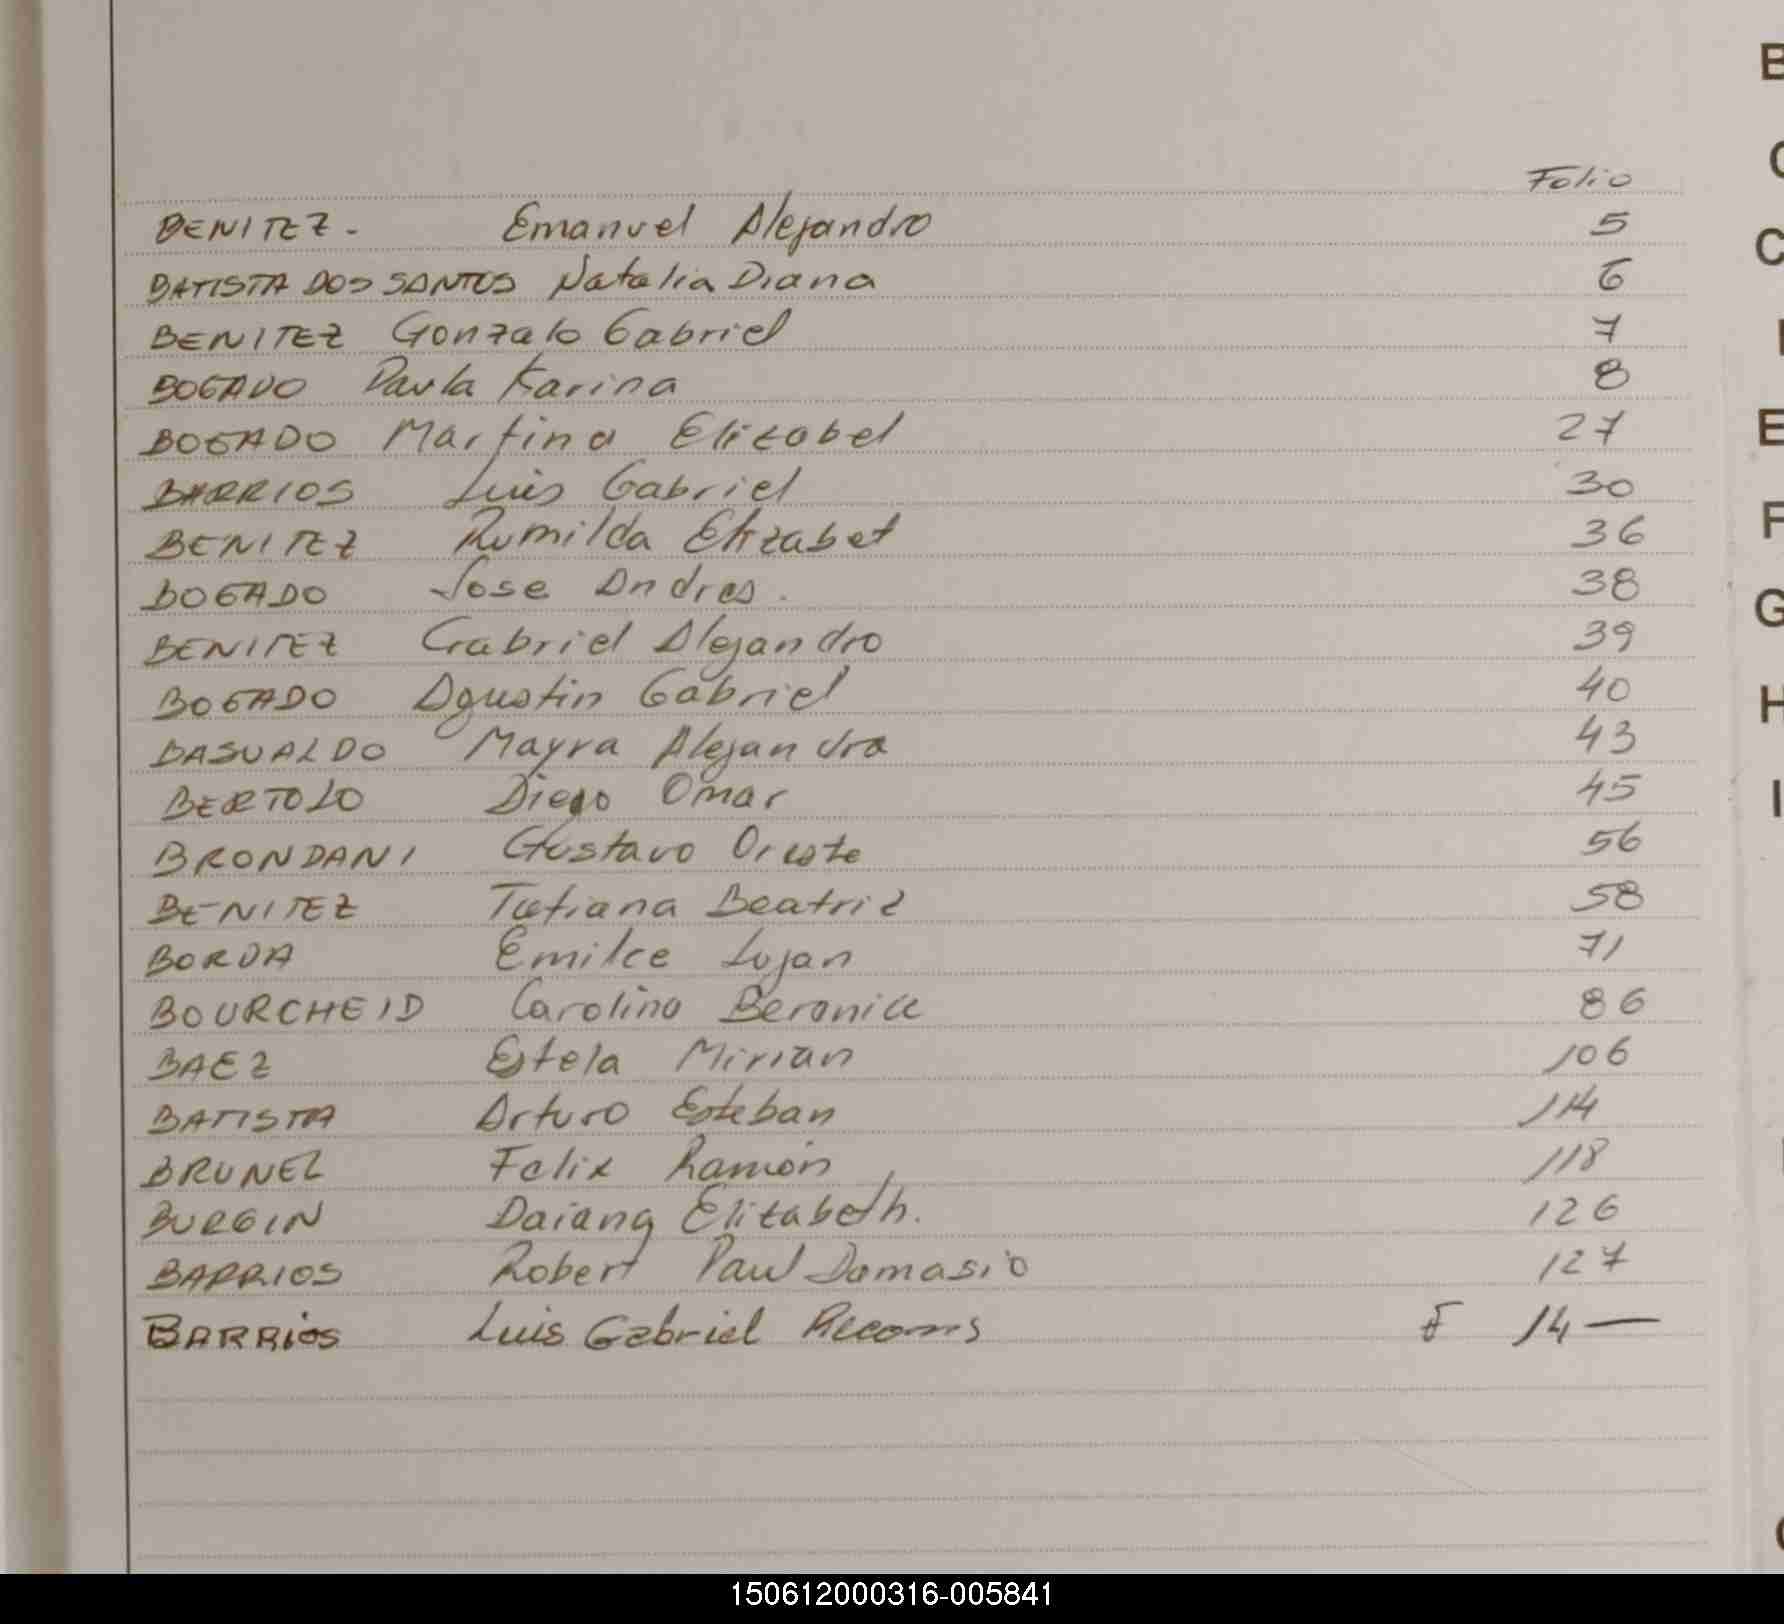 Folio
BENITEZ. Emanuel Alejandro 5
BATISTA DOS SANTOS Natalia Diana 6
BENITEZ Gonzalo Gabriel 7
BOGADO Paula Karina 8
BOGADO Martina Elizabel 27
BARRIOS Luis Gabriel 30
BENITEZ Rumilda Elizabet 36
BOGADO Jose Andres. 38
BENITEZ Gabriel Alejandro 39
BOGADO Agustin Gabriel 40
BASUALDO Mayra Alejandra 43
BERTOLO Diego Omar 45
BRONDANI Gustavo Oreste 56
BENITEZ Tatiana Beatriz 58
BORDA Emilce Lujan 71
BOURCHEID Carolina Beronice 86
BAEZ Estela Mirian 106
BATISTA Arturo Esteban 114
BRUNEL Felix Ramón 118
BURGIN Daiana Elizabeth. 126
BARRIOS Robert Paul Damasio 127
BARRIOS Luis Gabriel F 14 —
B
C
E
F
G
H
I
150612000316-005841